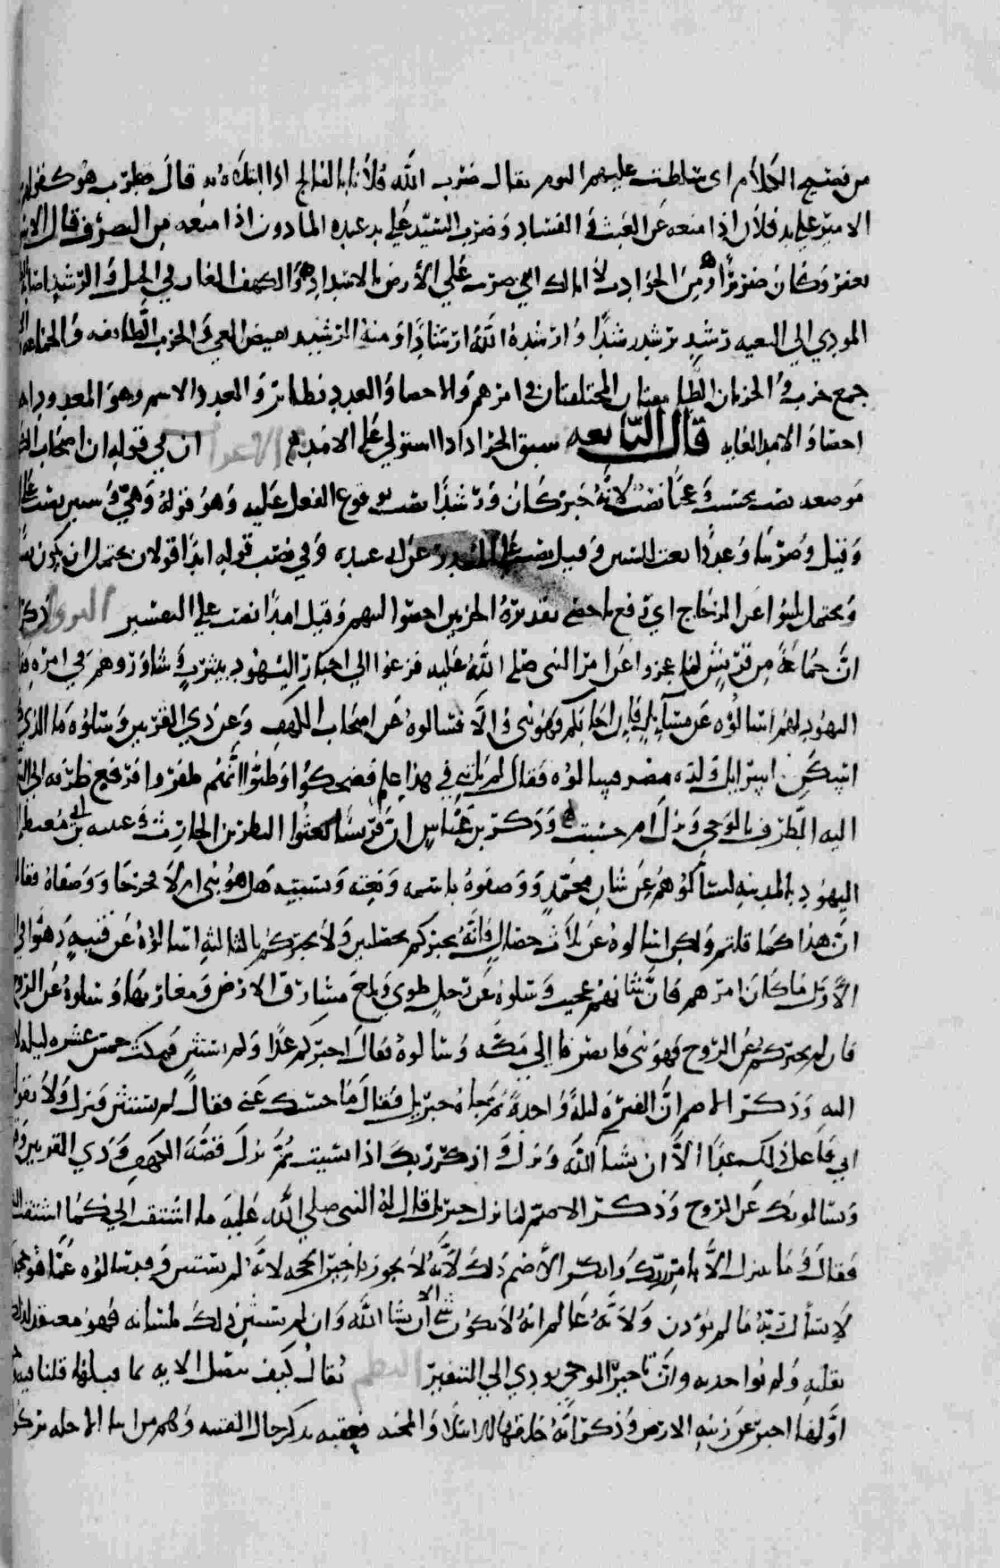 من فصيح الكلام اى سلطت عليهم النوم يقال ضرب الله فلانا بالفالج اذا ابتلاه به قال قطرب هو كقولهم
الامير على يد فلان اذا منعه عن العبث و الفساد وضرب السيد على يد عبده الماذون اذا منعه من التصرف قال الا
يعفر وكان ضريرا ومن الحوادث لا ابالك انني ضربت على الارض بالاسداد والكهف الغار في الجبل والرشد
المودي الى البغيه رشد يرشد رشدا وارشده الله ارشادا ومنه الرشد نقيض الغي والحزب الطائفه والجماعه
جمع حزب والحزبان الطائفتان المختلفتان في امرهم والاحصا والعدد نظائر والعدد الاسم وهو المعدود
احصا والامد الغايه قال النابغه سبق الجواد اذا استولى على الامد الاعراب ان في قوله ان اصحاب
موضعه نصب بحسبت وعجبا نصب لانه خبر كان ورشدا نصب بوقوع الفعل عليه وهو قوله وهيئ وسنين نصب على
وقيل وصربنا وعددا نعت للسنين وقيل نصب على المصدر عن ابي عبيده وفي نصب قوله امدا قولان يحتمل ان يكون
ويحتمل لبثوا عن الزجاج اى رفع باحصى تقديره الحزبين احصوا لبثهم وقيل امدا نصب على التفسير النزول ذكر
ان جماعة من قريش لما عجزوا عن امر النبي صلى الله عليه فزعوا الى احبار اليهود بيثرب وشاوروهم في امره
اليهود لهم اسالوه عن مسائل فان اجابكم فهو نبي والا فسالوه عن اصحاب الكهف وعن ذي القرنين وسلوه ما الذي
اسكن اسرايل ولده مصر فسالوه فقال لم ياتني في هذا علم فضحكوا وظنوا انهم ظفروا فرفع طرفه الى
اليه الطرف بالوحي ونزل ام حسبت وذكر ابن عباس ان قريشا بعثوا النضر بن الحارث وعقبه بن ابي معيط
اليهود بالمدينه لتسالوهم عن شان محمد ووصفوه باسمه ونعته ونسبته هل هو نبي ام لا فخرجا ووصفاه فقال
ان هذا كما قلتم ولكن اسالوه عن ثلاث خصال فانه يخبركم بخصلتين ولا يخبركم بالثالثه اسالوه عن فتيه ذهبوا في
الاول ما كان امرهم فان نبأهم عجب وسلوه عن رجل طوى وبلغ مشارق الارض ومغاربها وسلوه عن الروح
فان لم يخبركم عن الروح فهو نبي فانصرفا الى مكه وسالوه فقال اخبركم غدا ولم يستثن فمكث خمس عشره ليله لا
اليه وذكر الاصم ان الفتره ليلة واحدة ثم جاه جبريل فقال ما حبسك عني فقال لم تستثن فنزل ولا تقولن
اني فاعل ذلك غدا الا ان يشا الله ونزل واذكر ربك اذا نسيت ثم نزل قصة الكهف وذي القرنين
وسالونك عن الروح وذكر الاصم لما نزل جبريل قال له النبي صلى الله عليه ما اشتقت الي كما اشتقت
فقال وما نتنزل الا بامر ربك وانكر الاصم ذلك لانه لا يجوز تاخير الحجه لانه لم يستثن وقد سالوه عما فوجه
لا يسال ربه ما لم يؤذن ولانه عالم انه لا يكون شي الا ان يشا الله وان لم يستثن ذلك بلسانه فهو معتقد لذلك
بقلبه ولم يواخذ به وان تاخير الوحي يودي الى التنفير النظم يقال كيف تتصل الايه بما قبلها قلنا فيه
اولها اخبر عن زينه الارض وذكر انه خلقها للابتلا والمحنه فعقبه بذكر حال الفتيه وهم من ابنا الـ